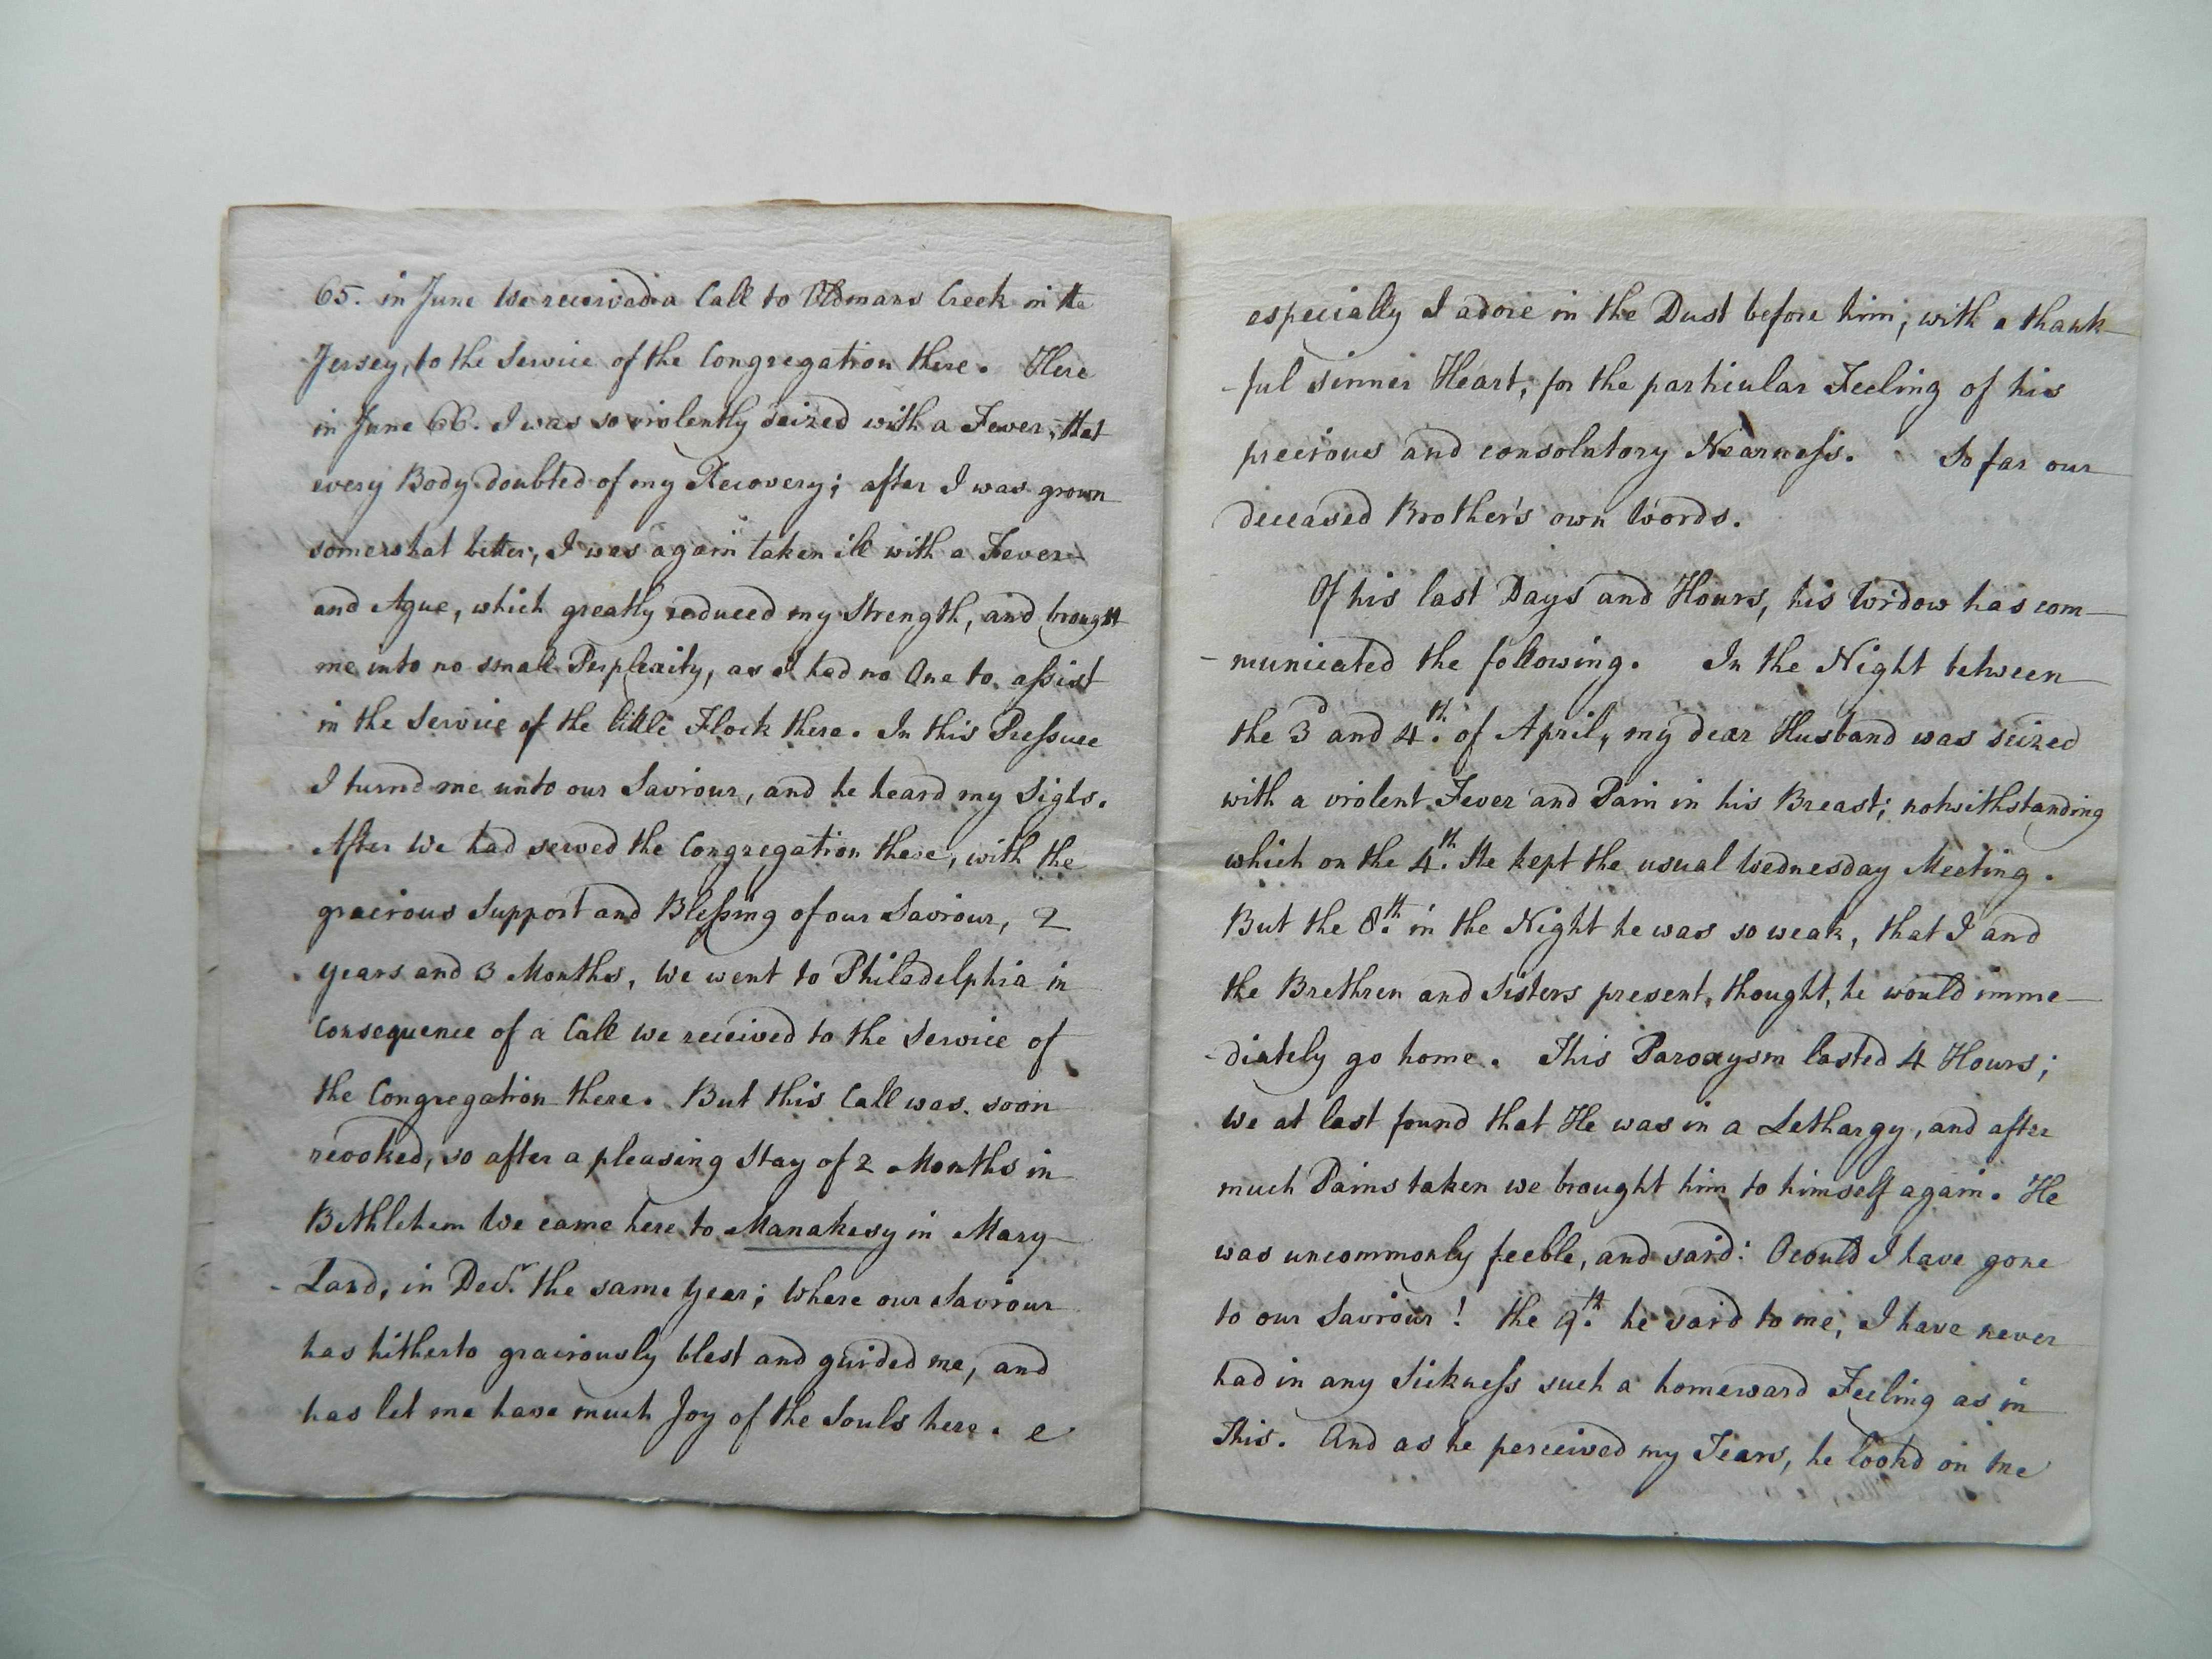 65. in June We received a Call to Oldmans Creek in the
Jersey, to the Service of the Congregation there. Here
in June 66. I was so violently seized with a Fever, that
every Body doubted of my Recovery; after I was grown
somewhat better, I was again taken ill with a Fever
and Ague, which greatly reduced my Strength, and brought
me into no small Perplexity, as I had no One to assist
in the Service of the little Flock there. In this Pressure
I turnd me unto our Saviour, and he heard my Sighs.
After We had served the Congregation there, with the
gracious Support and Blessing of our Saviour, 2
years and 3 Months, We went to Philadelphia in
Consequence of a Call we received to the Service of
the Congregation there. But this Call was soon
revoked, so after a pleasing Stay of 2 Months in
Bethlehem We came here to Manakesy in Mary
-Land, in Decr. the same Year; Where our Saviour
has hitherto graciously blest and guided me, and
has let me have much Joy of the Souls here. e
especially I adore in the Dust before him, with a thank-
-ful sinner Heart, for the particular Feeling of his
precious and consolatory Nearness. So far our
deceased Brother's own Words.
Of his last Days and Hours, his Widow has com-
-municated the following. In the Night between
the 3d and 4th. of April, my dear Husband was seized
with a violent Fever and Pain in his Breast; notwithstanding
which on the 4th. He kept the usual Wednesday Meeting.
But the 8th. in the Night he was so weak, that I and
the Brethren and Sisters present, thought, he would imme-
-diately go home. This Paroxysm lasted 4 Hours;
We at last found that He was in a Lethargy, and after
much Pains taken we brought him to himself again. He
was uncommonly feeble, and said: O could I have gone
to our Saviour! the 9th. he said to me, I have never
had in any Sickness such a homeward Feeling as in
This. And as he perceived my Tears, he lookd on me